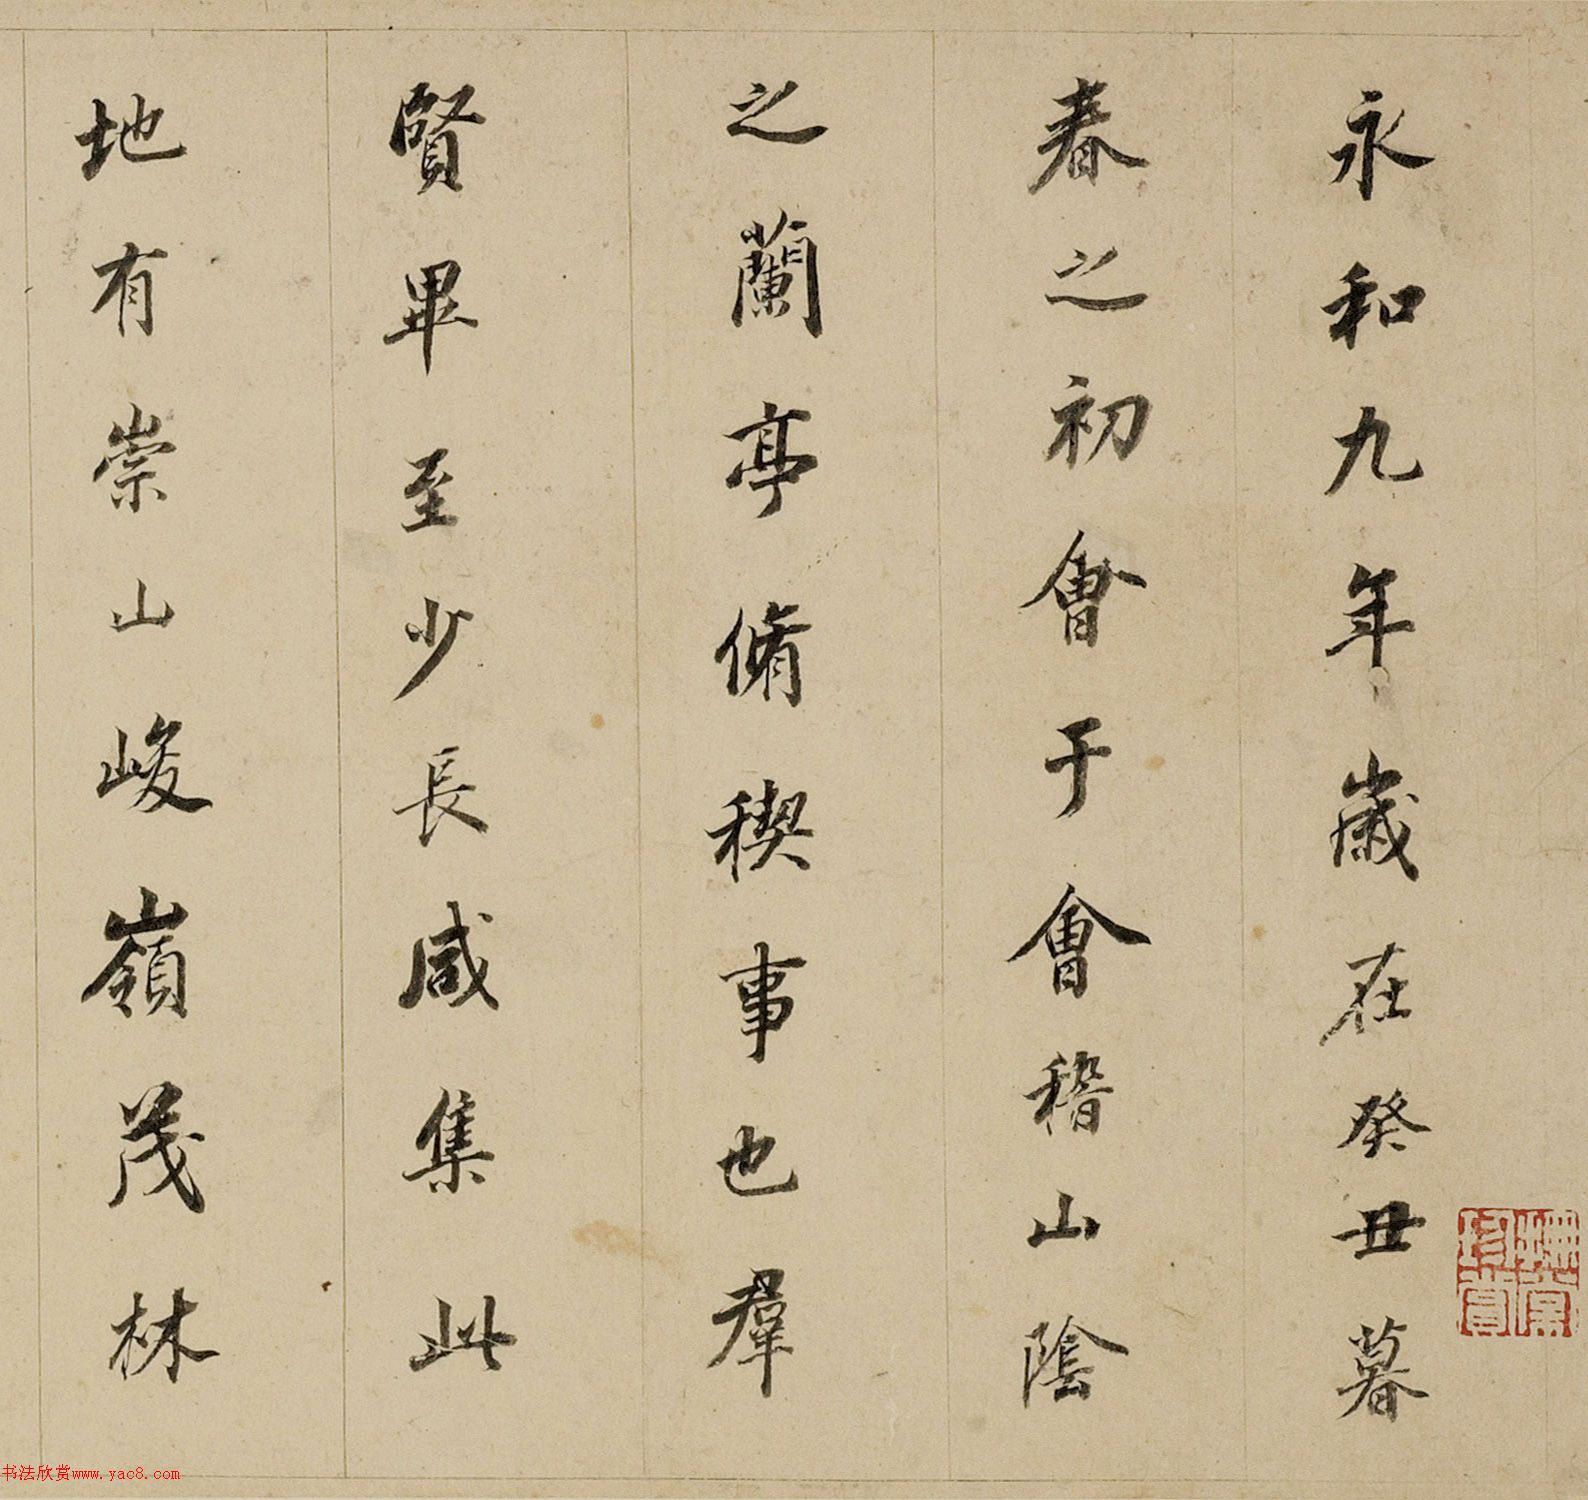 永和九年歲在癸丑暮
春之初會于會稽山陰
之蘭亭脩稧事也羣
賢畢至少長咸集此
地有崇山峻嶺茂林
书法欣赏www.yac8.com